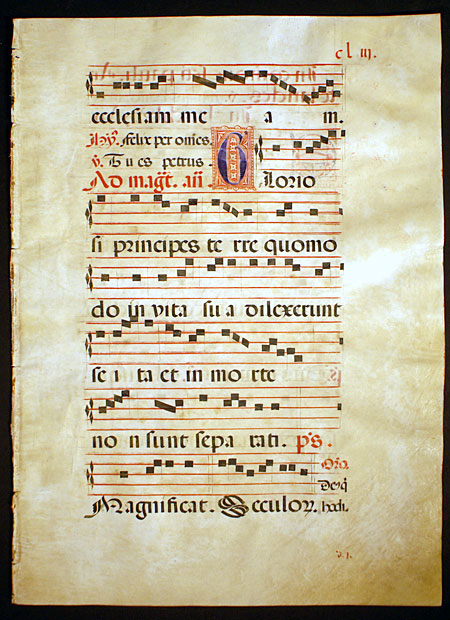 cl iii.
ecclesiam me a m.
Hỹ. felix per omēs
v. Tu es petrus.
Ad mag̃t. añ GLorio
si principes te rre quomo
do in vita su a dilexerunt
se i ta et in mo rte
no n sunt sepa rati. p̃s.
Magnificat. Seculoꝝ.